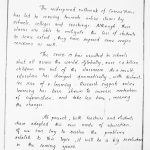 The widespread outbreak of Coronavirus
has led to moving towards online classes by
schools, colleges and
are able to mitigate the loss of students
to some extent, they have exposed
or not.
The COVID-19 has resulted in schools
shut all across the world. Globally, over 1.2 billion
children are out of the classroom. As a result
education has changed dramatically, with distinctive
rise of e-learning. Research suggests that
learning has been shown to increase retention
of information, and take less time, meaning
the changes
At present, both teachers and students
have adapted this new mode of education.
If we can try to resolve the problems
related to this topic, it will be a big revolution
in the coming years.